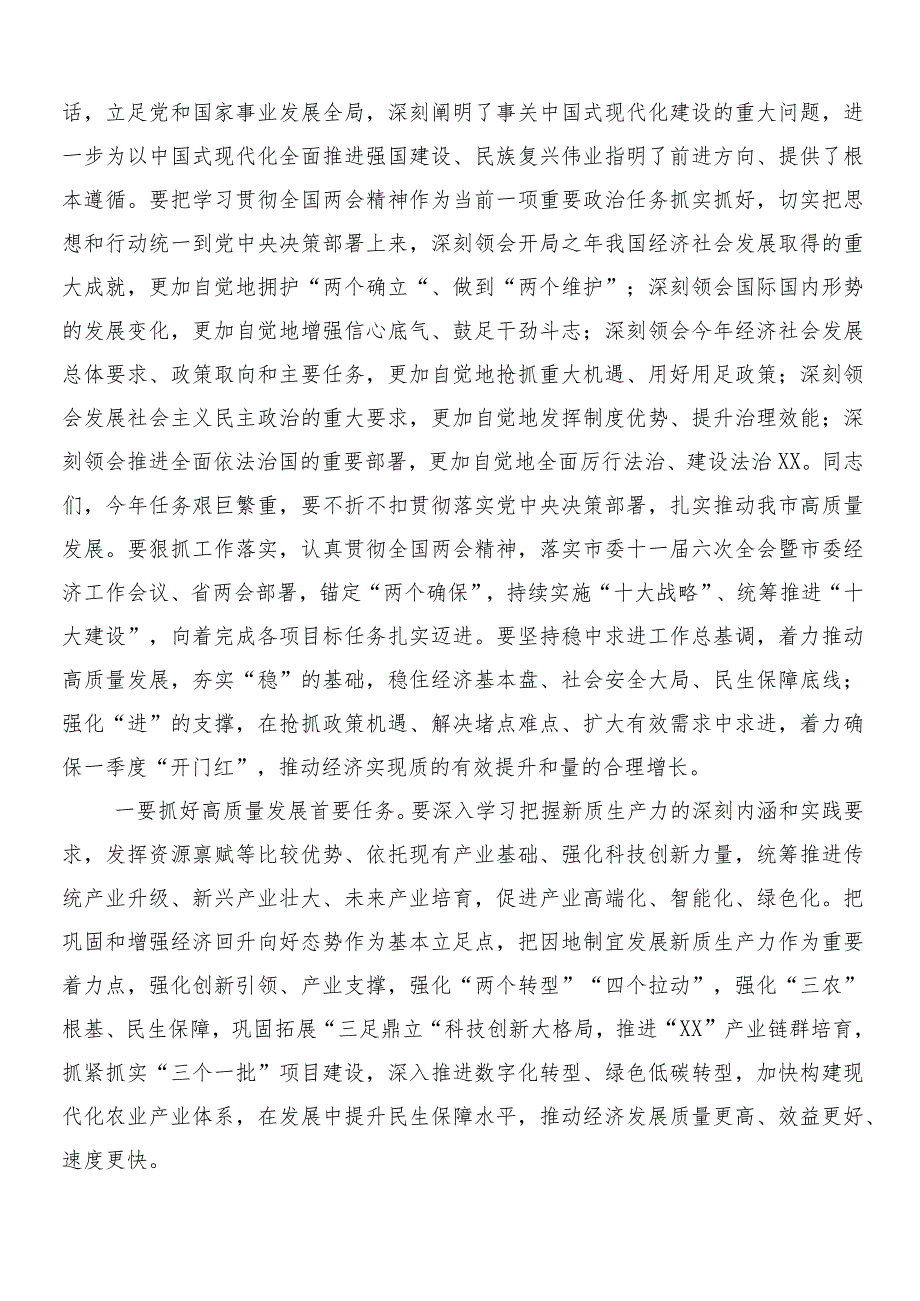 话，立足党和国家事业发展全局，深刻阐明了事关中国式现代化建设的重大问题，进
一步为以中国式现代化全面推进强国建设、民族复兴伟业指明了前进方向、提供了根
本遵循。要把学习贯彻全国两会精神作为当前一项重要政治任务抓实抓好，切实把思
想和行动统一到党中央决策部署上来，深刻领会开局之年我国经济社会发展取得的重
大成就，更加自觉地拥护“两个确立“、做到“两个维护”；深刻领会国际国内形势
的发展变化，更加自觉地增强信心底气、鼓足干劲斗志；深刻领会今年经济社会发展
总体要求、政策取向和主要任务，更加自觉地抢抓重大机遇、用好用足政策；深刻领
会发展社会主义民主政治的重大要求，更加自觉地发挥制度优势、提升治理效能；深
刻领会推进全面依法治国的重要部署，更加自觉地全面厉行法治、建设法治XX。同志
们，今年任务艰巨繁重，要不折不扣贯彻落实党中央决策部署，扎实推动我市高质量
发展。要狠抓工作落实，认真贯彻全国两会精神，落实市委十一届六次全会暨市委经
济工作会议、省两会部署，锚定“两个确保”，持续实施“十大战略”、统筹推进“十
大建设”，向着完成各项目标任务扎实迈进。要坚持稳中求进工作总基调，着力推动
高质量发展，夯实“稳”的基础，稳住经济基本盘、社会安全大局、民生保障底线；
强化“进”的支撑，在抢抓政策机遇、解决堵点难点、扩大有效需求中求进，着力确
保一季度“开门红”，推动经济实现质的有效提升和量的合理增长。
一要抓好高质量发展首要任务。要深入学习把握新质生产力的深刻内涵和实践要
求，发挥资源禀赋等比较优势、依托现有产业基础、强化科技创新力量，统筹推进传
统产业升级、新兴产业壮大、未来产业培育，促进产业高端化、智能化、绿色化。把
巩固和增强经济回升向好态势作为基本立足点，把因地制宜发展新质生产力作为重要
着力点，强化创新引领、产业支撑，强化“两个转型”“四个拉动”，强化“三农”
根基、民生保障，巩固拓展“三足鼎立“科技创新大格局，推进“XX”产业链群培育，
抓紧抓实“三个一批”项目建设，深入推进数字化转型、绿色低碳转型，加快构建现
代化农业产业体系，在发展中提升民生保障水平，推动经济发展质量更高、效益更好、
速度更快。